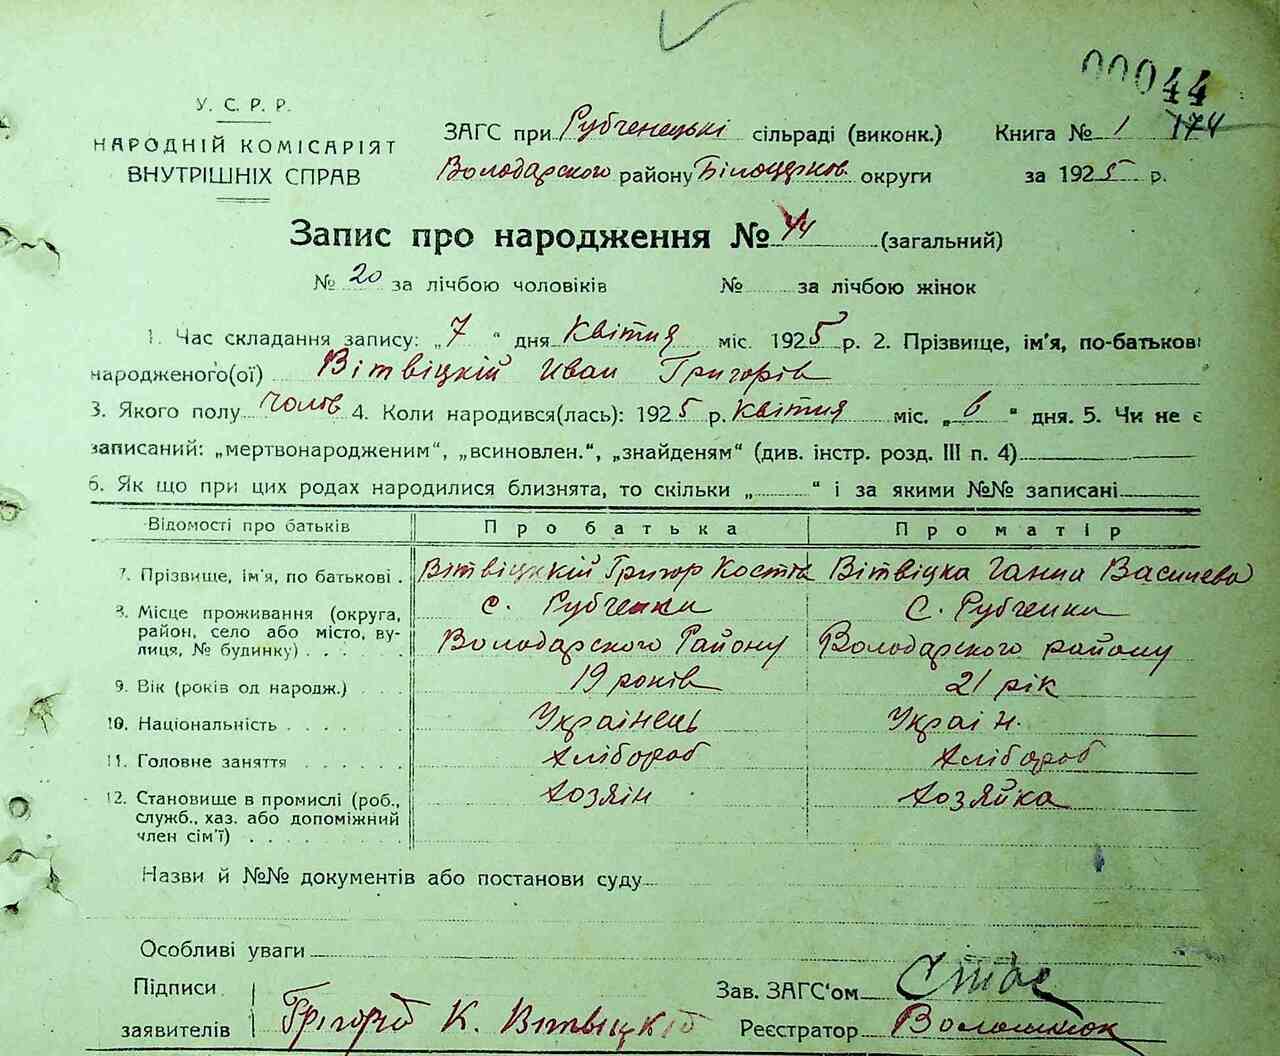 00044
У. С. Р. Р.
НАРОДНІЙ КОМІСАРІЯТ
ВНУТРІШНІХ СПРАВ
ЗАГС при Рубченецькі сільраді (виконк.)
Володарского району Білоцерков. округи
Книга № 1 174
за 1925 р.
Запис про народження № 44 (загальний)
№ 20 за лічбою чоловіків № за лічбою жінок
1. Час складання запису: „7“ дня Квітня міс. 1925 р. 2. Прізвище, ім'я, по-батькові
народженого(ої) Вітвіцкій Иван Григорів
3. Якого полу Чолов 4. Коли народився(лась): 1925 р. Квітня міс. „6“ дня. 5. Чи не є
записаний: „мертвонародженим“, „всиновлен.“, „знайденям“ (див. інстр. розд. III п. 4)
6. Як що при цих родах народилися близнята, то скільки „ “ і за якими №№ записані
Відомості про батьків Про батька Про матір
7. Прізвище, ім'я, по батькові . Вітвіцкій Григор Костів Вітвіцка Ганна Василева
8. Місце проживання (округа, район, село або місто, вулиця, № будинку) . . . .
с. Рубченки
Володарского Району
С. Рубченки
Володарского району
9. Вік (років од народж.) . . . 19 років 21 рік
10. Національність . . . . . Українець Україн.
11. Головне заняття . . . . . Хлібороб Хлібороб
12. Становище в промислі (роб., служб., хаз. або допоміжний член сім'ї) . . . . . . . .
Хозяін
Хозяйка
Назви й №№ документів або постанови суду
Особливі уваги
Підписи
заявителів
Грігорій К. Вітвіцкій
Зав. ЗАГС'ом
Реєстратор Волошинюк